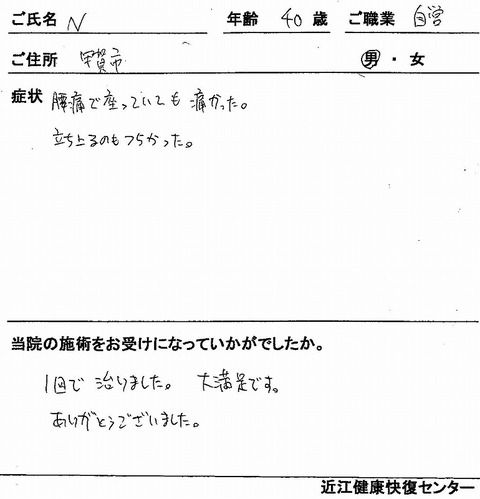 ご氏名 N 年齢 40 歳 ご職業 自営
ご住所 甲賀市 男・女
症状 腰痛で座っていても痛かった。
立ち上るのもつらかった。
当院の施術をお受けになっていかがでしたか。
1回で治りました。 大満足です。
ありがとうございました。
近江健康快復センター